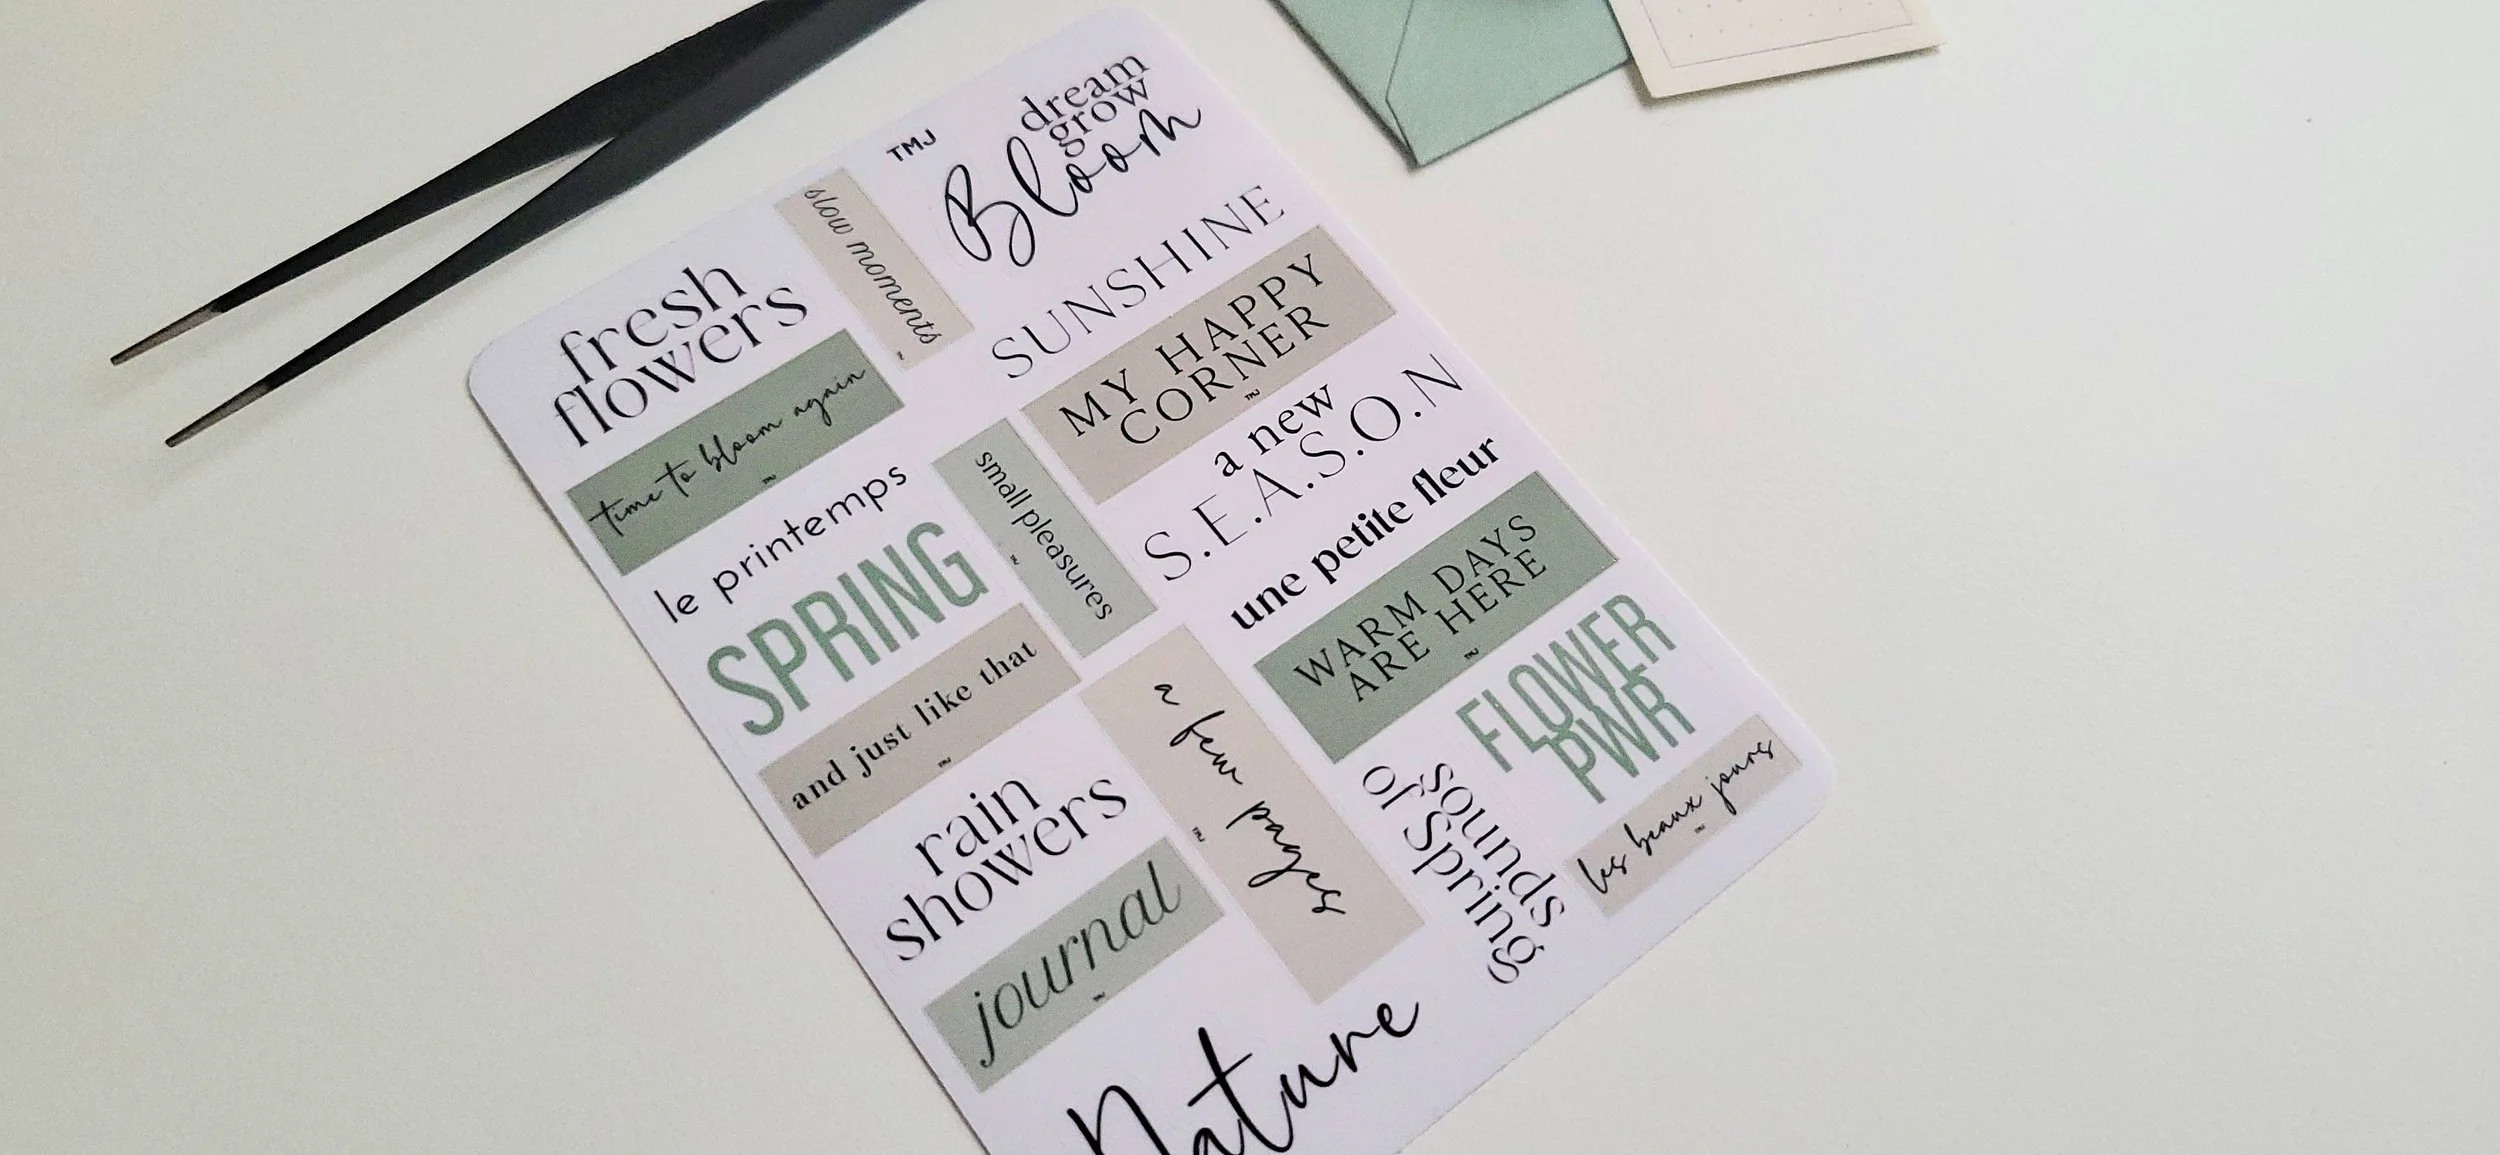 TMJ
dream
grow
Bloom
slow moments
TMJ
SUNSHINE
fresh
flowers
MY HAPPY
CORNER
TMJ
time to bloom again
TMJ
a new
S.E.A.S.O.N
le printemps
small pleasures
TMJ
une petite fleur
SPRING
WARM DAYS
ARE HERE
TMJ
and just like that
TMJ
a few pages
TMJ
FLOWER
PWR
rain
showers
sounds
of Spring
les beaux jours
TMJ
journal
TMJ
Nature